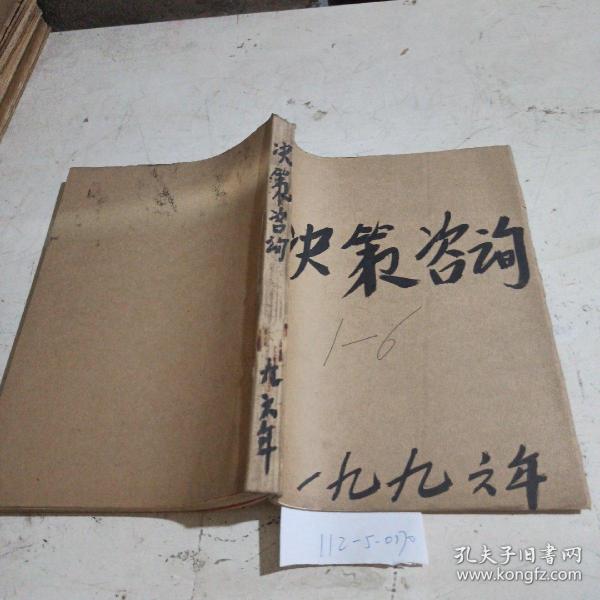 决策咨询
九六年
决策咨询
1-6
一九九六年
112-5-0170
孔夫子旧书网
www.kongfz.com